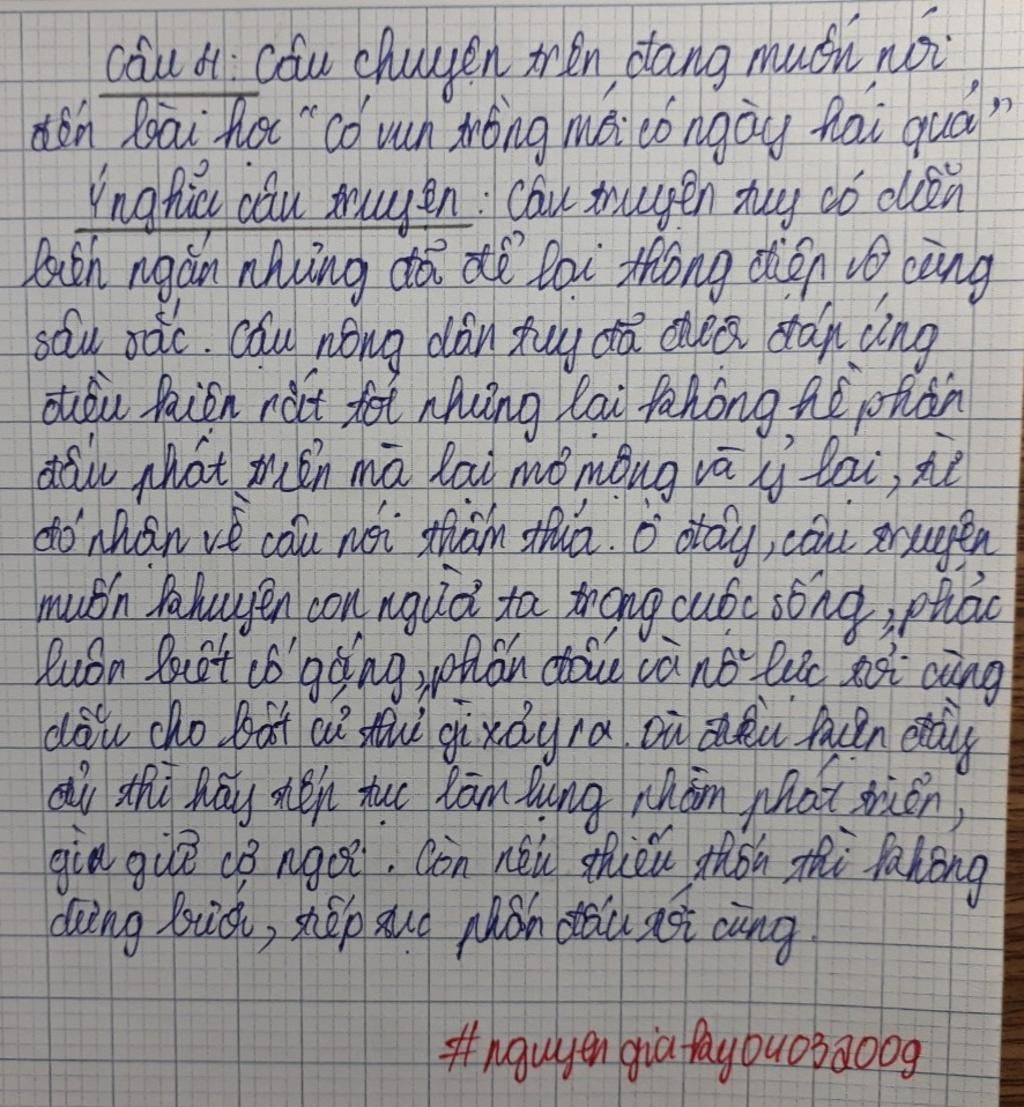 Câu 4: Câu chuyện trên đang muốn nói
đến bài học "Có vun trồng mới có ngày hái quả"
Ý nghĩa câu truyện: Câu truyện tuy có diễn
biến ngắn nhưng đã để lại thông điệp vô cùng
sâu sắc. Cậu nông dân tuy đã được đáp ứng
điều kiện rất tốt nhưng lại không hề phấn
đấu phát triển mà lại mơ mộng và ỷ lại, từ
đó nhận về câu nói thấm thía. Ở đây, câu truyện
muốn khuyên con người ta trong cuộc sống, phải
luôn biết cố gắng, phấn đấu và nỗ lực tới cùng
dẫu cho bất cứ thứ gì xảy ra. Dù điều kiện đầy
đủ thì hãy tiếp tục làm lụng nhằm phát triển,
gìn giữ cơ ngơi. Còn nếu thiếu thốn thì không
dừng bước, tiếp tục phấn đấu tới cùng.
#nguyen gia huy04032009